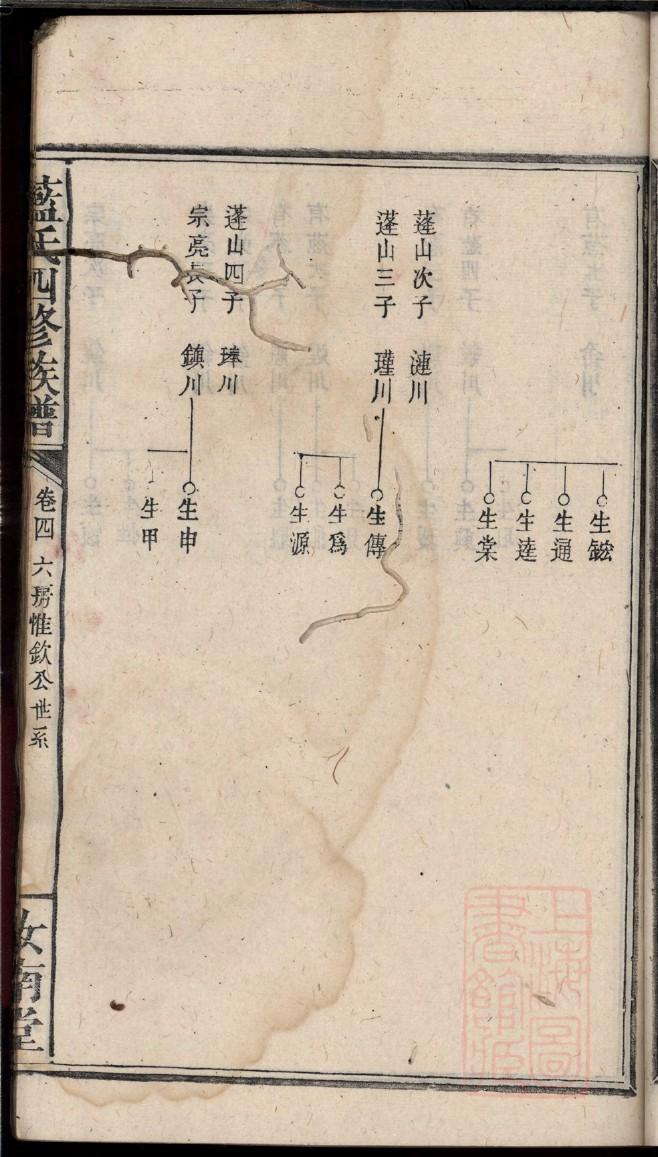 蓬山次子 漣川
蓬山三子 瑾川
蓬山四子 琫川
宗亮長子 鎮川
生鉱
生通
生逵
生棠
生傳
生為
生源
生申
生甲
藍氏四修族譜
卷四 六房惟欽公世系
汝南堂
上海圖書館藏